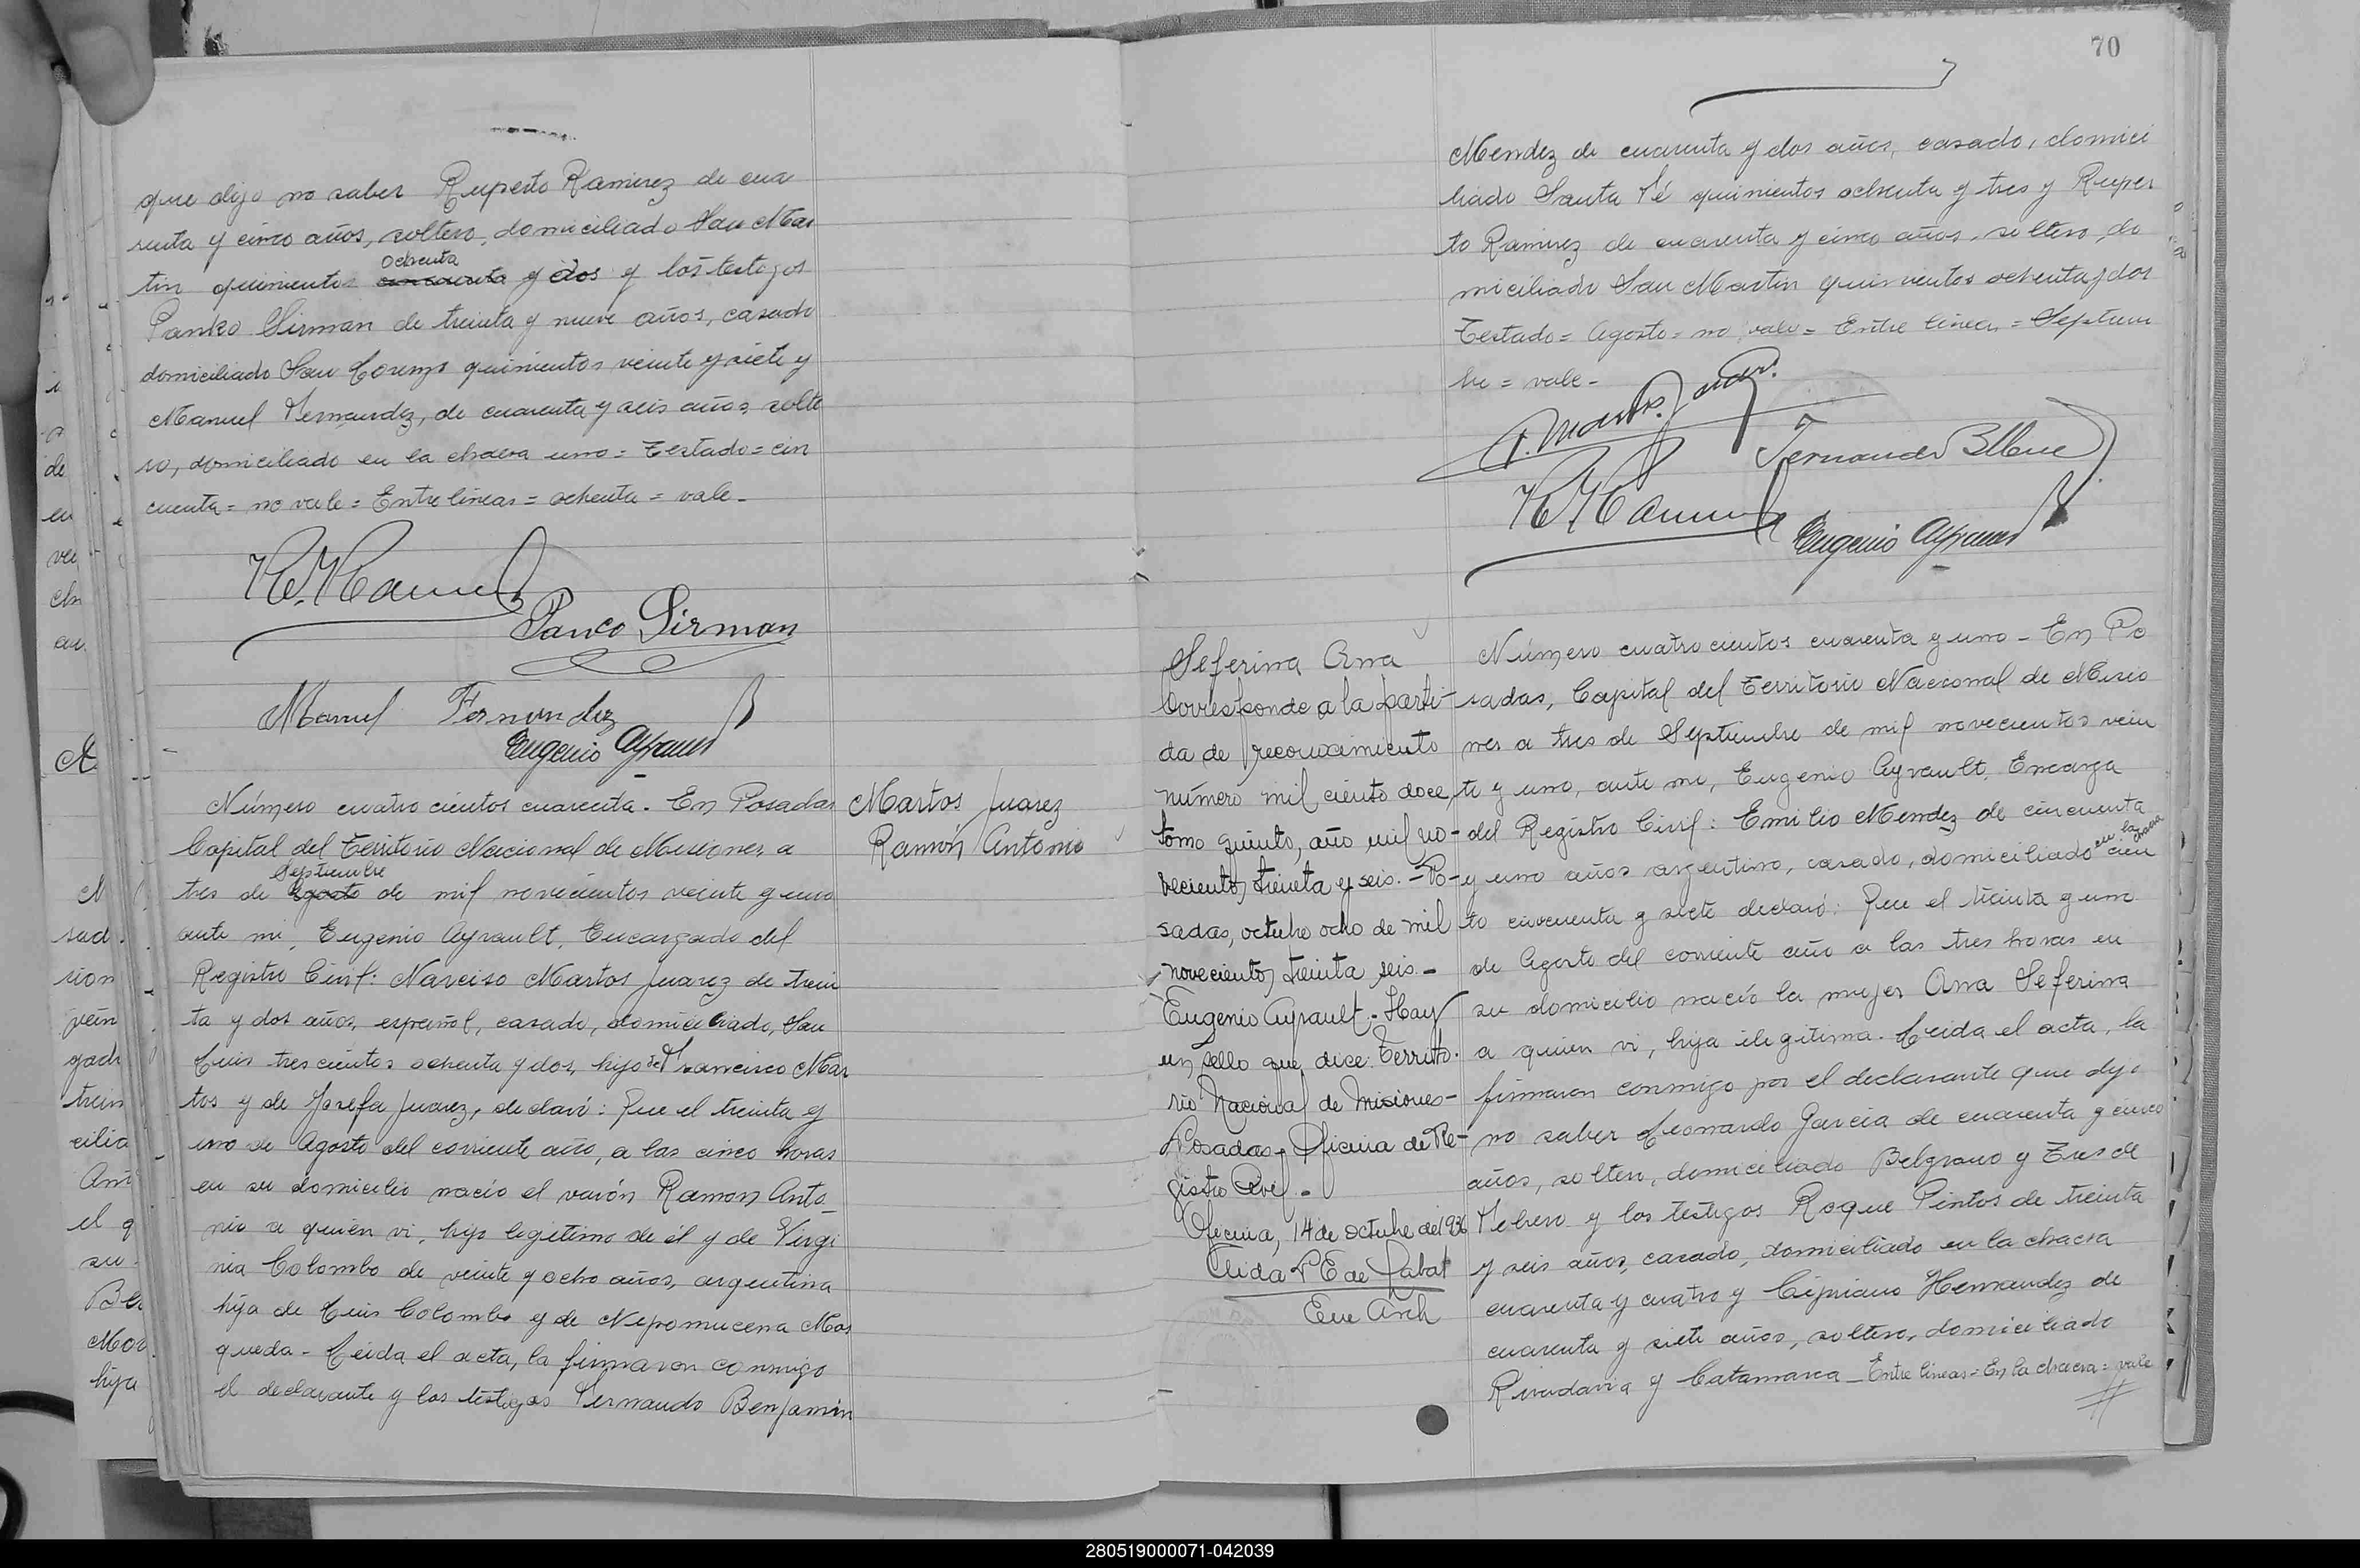 que dijo no saber Ruperto Ramirez de cua
renta y cinco años, soltero, domiciliado San Mar
ochenta
tin quinientos cincuenta y dos y los testigos
Panko Sirman de treinta y nueve años, casado
domiciliado San Lorenzo quinientos veinte y siete y
Manuel Fernandez, de cuarenta y seis años, solte
ro, domiciliado en la chacra uno = Testado = cin
cuenta = no vale = Entre lineas = ochenta = vale -
Panco Sirman
Manuel Fernandez
Eugenio Ayrault
Número cuatro cientos cuarenta. En Posadas
Capital del Territorio Nacional de Misiones, a
Septiembre
tres de Agosto de mil novecientos veinte y uno
ante mi, Eugenio Ayrault, Encargado del
Registro Civil: Narciso Martos Juarez de trein
ta y dos años, español, casado, domiciliado, San
Luis trescientos ochenta y dos, hijo de Francisco Mar
tos y de Josefa Juarez, declaró: Que el treinta y
uno de Agosto del corriente año, a las cinco horas
en su domicilio nació el varón Ramon Anto_
nio a quien vi, hijo legitimo de él y de Virgi
nia Colombo de veinte y ocho años, argentina
hija de Luis Colombo y de Nepomucena Mos
queda - Leida el acta, la firmaron conmigo
el declarante y los testigos Fernando Benjamin
Martos Juarez
Ramón Antonio
70
Mendez de cuarenta y dos años, casado, domici
liado Santa Fé quinientos ochenta y tres y Ruper
to Ramirez de cuarenta y cinco años, soltero, do
miciliado San Martin quinientos ochenta y dos
Testado = Agosto = no vale = Entre lineas = Septiem
bre = vale -
Fernando B
Eugenio Ayrault
Seferina Ana
Corresponde a la parti-
da de reconocimiento
número mil ciento doce,
tomo quinto, año mil no-
vecientos treinta y seis. - Po-
sadas, octubre ocho de mil
novecientos treinta seis. -
Eugenio Ayrault. - Hay
un sello que dice: Territo-
rio Nacional de Misiones -
Posadas - Oficina de Re-
gistro Civil. -
Oficina, 14 de octubre de 1936
Enc Arch
Número cuatro cientos cuarenta y uno - En Po
sadas, Capital del Territorio Nacional de Misio
nes a tres de Septiembre de mil novecientos vein
te y uno, ante mi, Eugenio Ayrault, Encarga
del Registro Civil: Emilio Mendez de cincuenta
en la chacra
y uno años argentino, casado, domiciliado cien
to cincuenta y siete declaró: Que el treinta y uno
de Agosto del corriente año a las tres horas en
su domicilio nació la mujer Ana Seferina
a quien vi, hija ilegitima. Leida el acta, la
firmaron conmigo por el declarante que dijo
no saber Leonardo Garcia de cuarenta y cinco
años, soltero, domiciliado Belgrano y Tres de
Febrero y los testigos Roque Pintos de treinta
y seis años, casado, domiciliado en la chacra
cuarenta y cuatro y Cipriano Hernandez de
cuarenta y siete años, soltero, domiciliado
Rivadavia y Catamarca - Entre lineas = En la chacra = vale
280519000071-042039